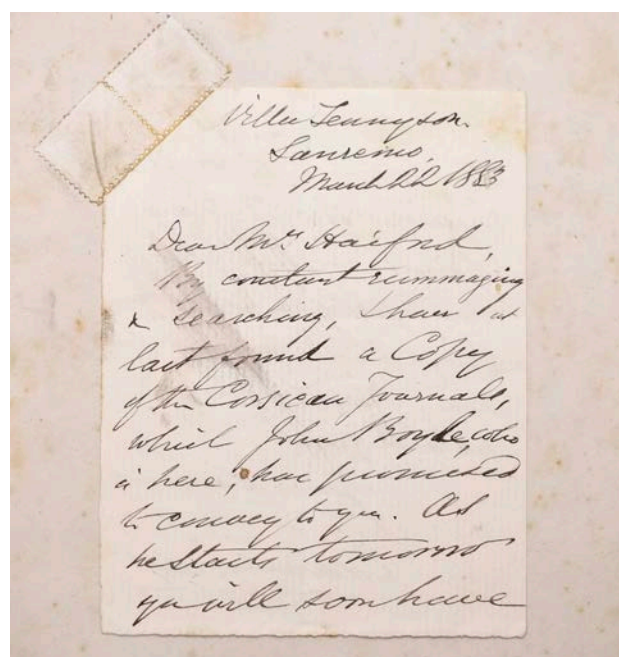 Villa Tennyson.
Sanremo,
March 22 1883
Dear Mrs Haiford,
By constant rummaging
& searching, I have at
last found a Copy
of the Corsican Journals,
which John Boyle, who
is here, has promised
to convey to you. As
he starts tomorrow
you will soon have